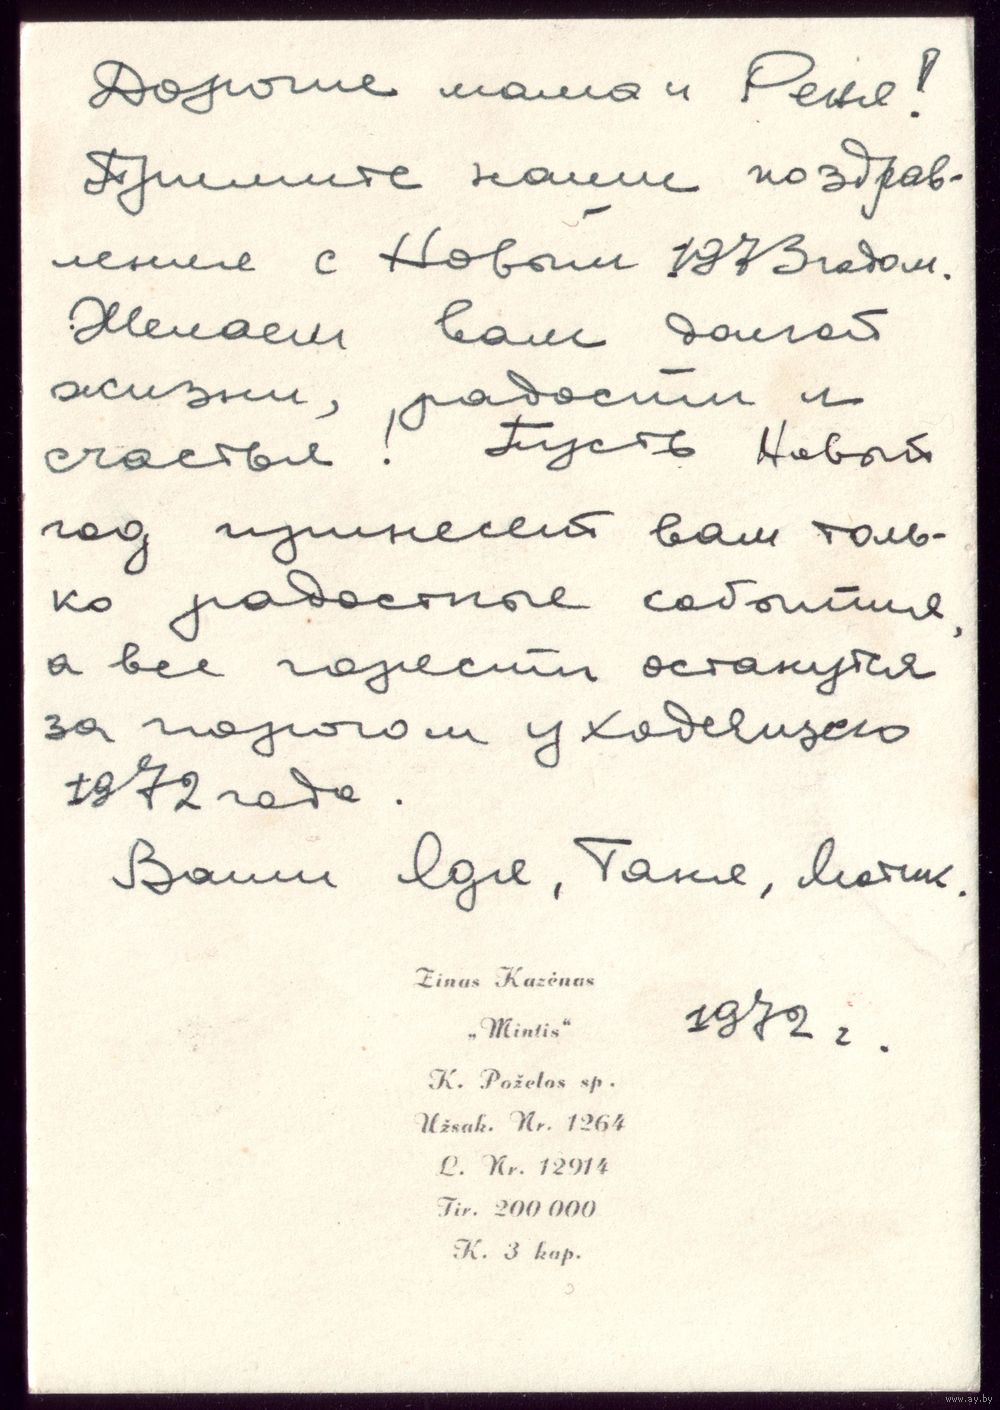 Дорогие мама и Реня!
Примите наши поздрав-
ления с Новым 1973 годом.
Желаем вам долгой
жизни, радости и
счастья! Пусть Новый
год принесет вам толь-
ко радостные события,
а все горести останутся
за порогом уходящего
1972 года.
Ваши Ядя, Таня,
Zinas Kazėnas
„Mintis“
1972 г.
K. Poželos sp.
Užsak. Nr. 1264
L. Nr. 12914
Tir. 200 000
K. 3 kap.
www.ay.by